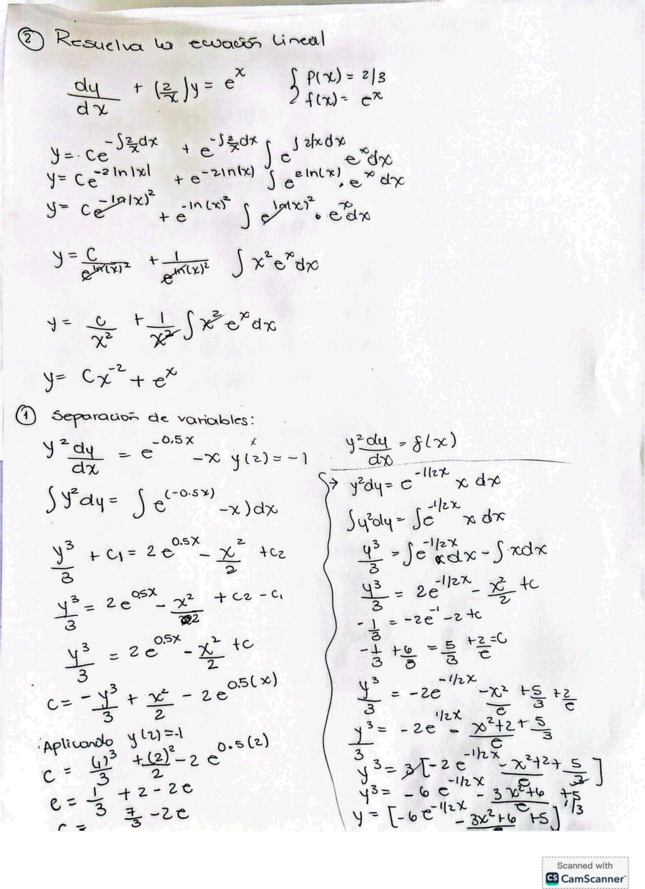 ② Resuelva la ecuación lineal
dy/dx + (2/x)y = e^x { P(x) = 2/3
f(x) = e^x
y = Ce^{-∫2/x dx} + e^{-∫2/x dx} ∫ e^{∫2/x dx} e^x dx
y = Ce^{-2 ln|x|} + e^{-2 ln(x)} ∫ e^{2 ln(x)} . e^x dx
y = Ce^{-ln(x)^2} + e^{-ln(x)^2} ∫ e^{ln(x)^2} • e^x dx
y = C/e^{ln(x)^2} + 1/e^{ln(x)^2} ∫ x^2 e^x dx
y = c/x^2 + 1/x^2 ∫ x^2 e^x dx
y = Cx^{-2} + e^x
① Separación de variables:
y^2 dy/dx = e^{-0.5x} - x y(2) = -1
∫ y^2 dy = ∫ e^{(-0.5x)} - x) dx
y^3/3 + C1 = 2e^{0.5x} - x^2/2 + C2
y^3/3 = 2e^{0.5x} - x^2/2 + C2 - C1
y^3/3 = 2e^{0.5x} - x^2/2 + C
C = -y^3/3 + x^2/2 - 2e^{0.5(x)}
Aplicando y(2) = -1
+ (2)^2/2 - 2e^{0.5(2)}
= 1/3 + 2 - 2e
7/3 - 2e
y^2 dy/dx = f(x)
→ y^2 dy = e^{-1/2x} x dx
∫ y^2 dy = ∫ e^{-1/2x} x dx
y^3/3 = ∫ e^{-1/2x} x dx - ∫ x dx
y^3/3 = 2e^{-1/2x} - x^2/2 + C
-1/3 = -2e^{-1} - 2 + C
-1/3 + 6/3 = 5/3 + 2/e = C
y^3/3 = -2e^{-1/2x} - x^2/e + 5/3 + 2/e
y^3/3 = -2e^{1/2x} - x^2+2/e + 5/3
y^3 = 3[-2e^{-1/2x} - x^2+2/e + 5/3]
y^3 = -6e^{-1/2x} - 3x^2+6/e + 5
y = [-6e^{-1/2x} - 3x^2+6/e + 5]^{1/3}
Scanned with
CS CamScanner